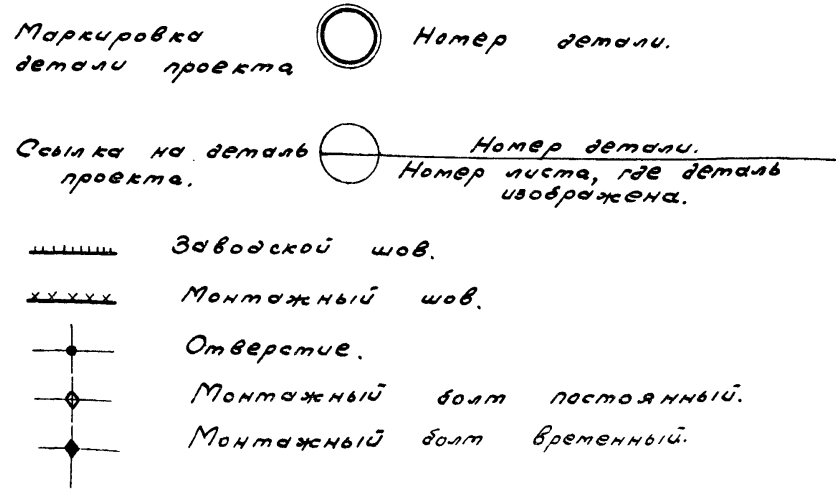 Маркировка
детали проекта
Номер детали.
Ссылка на деталь
проекта.
Номер детали.
Номер листа, где деталь
изображена.
Заводской шов.
Монтажный шов.
Отверстие.
Монтажный болт постоянный.
Монтажный болт временный.